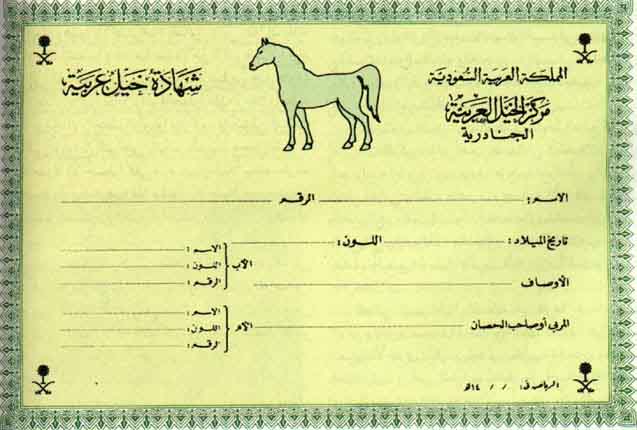 المملكة العربية السعودية
مركز الخيل العربية
الجنادرية
شهادة خيل عربية
الاسم : الرقم
تاريخ الميلاد : اللون :
الأوصاف
المربي أو صاحب الحصان
الأب
الاسم :
اللون :
الرقم :
الأم
الاسم :
اللون :
الرقم :
الرياض في : / / ١٤هـ